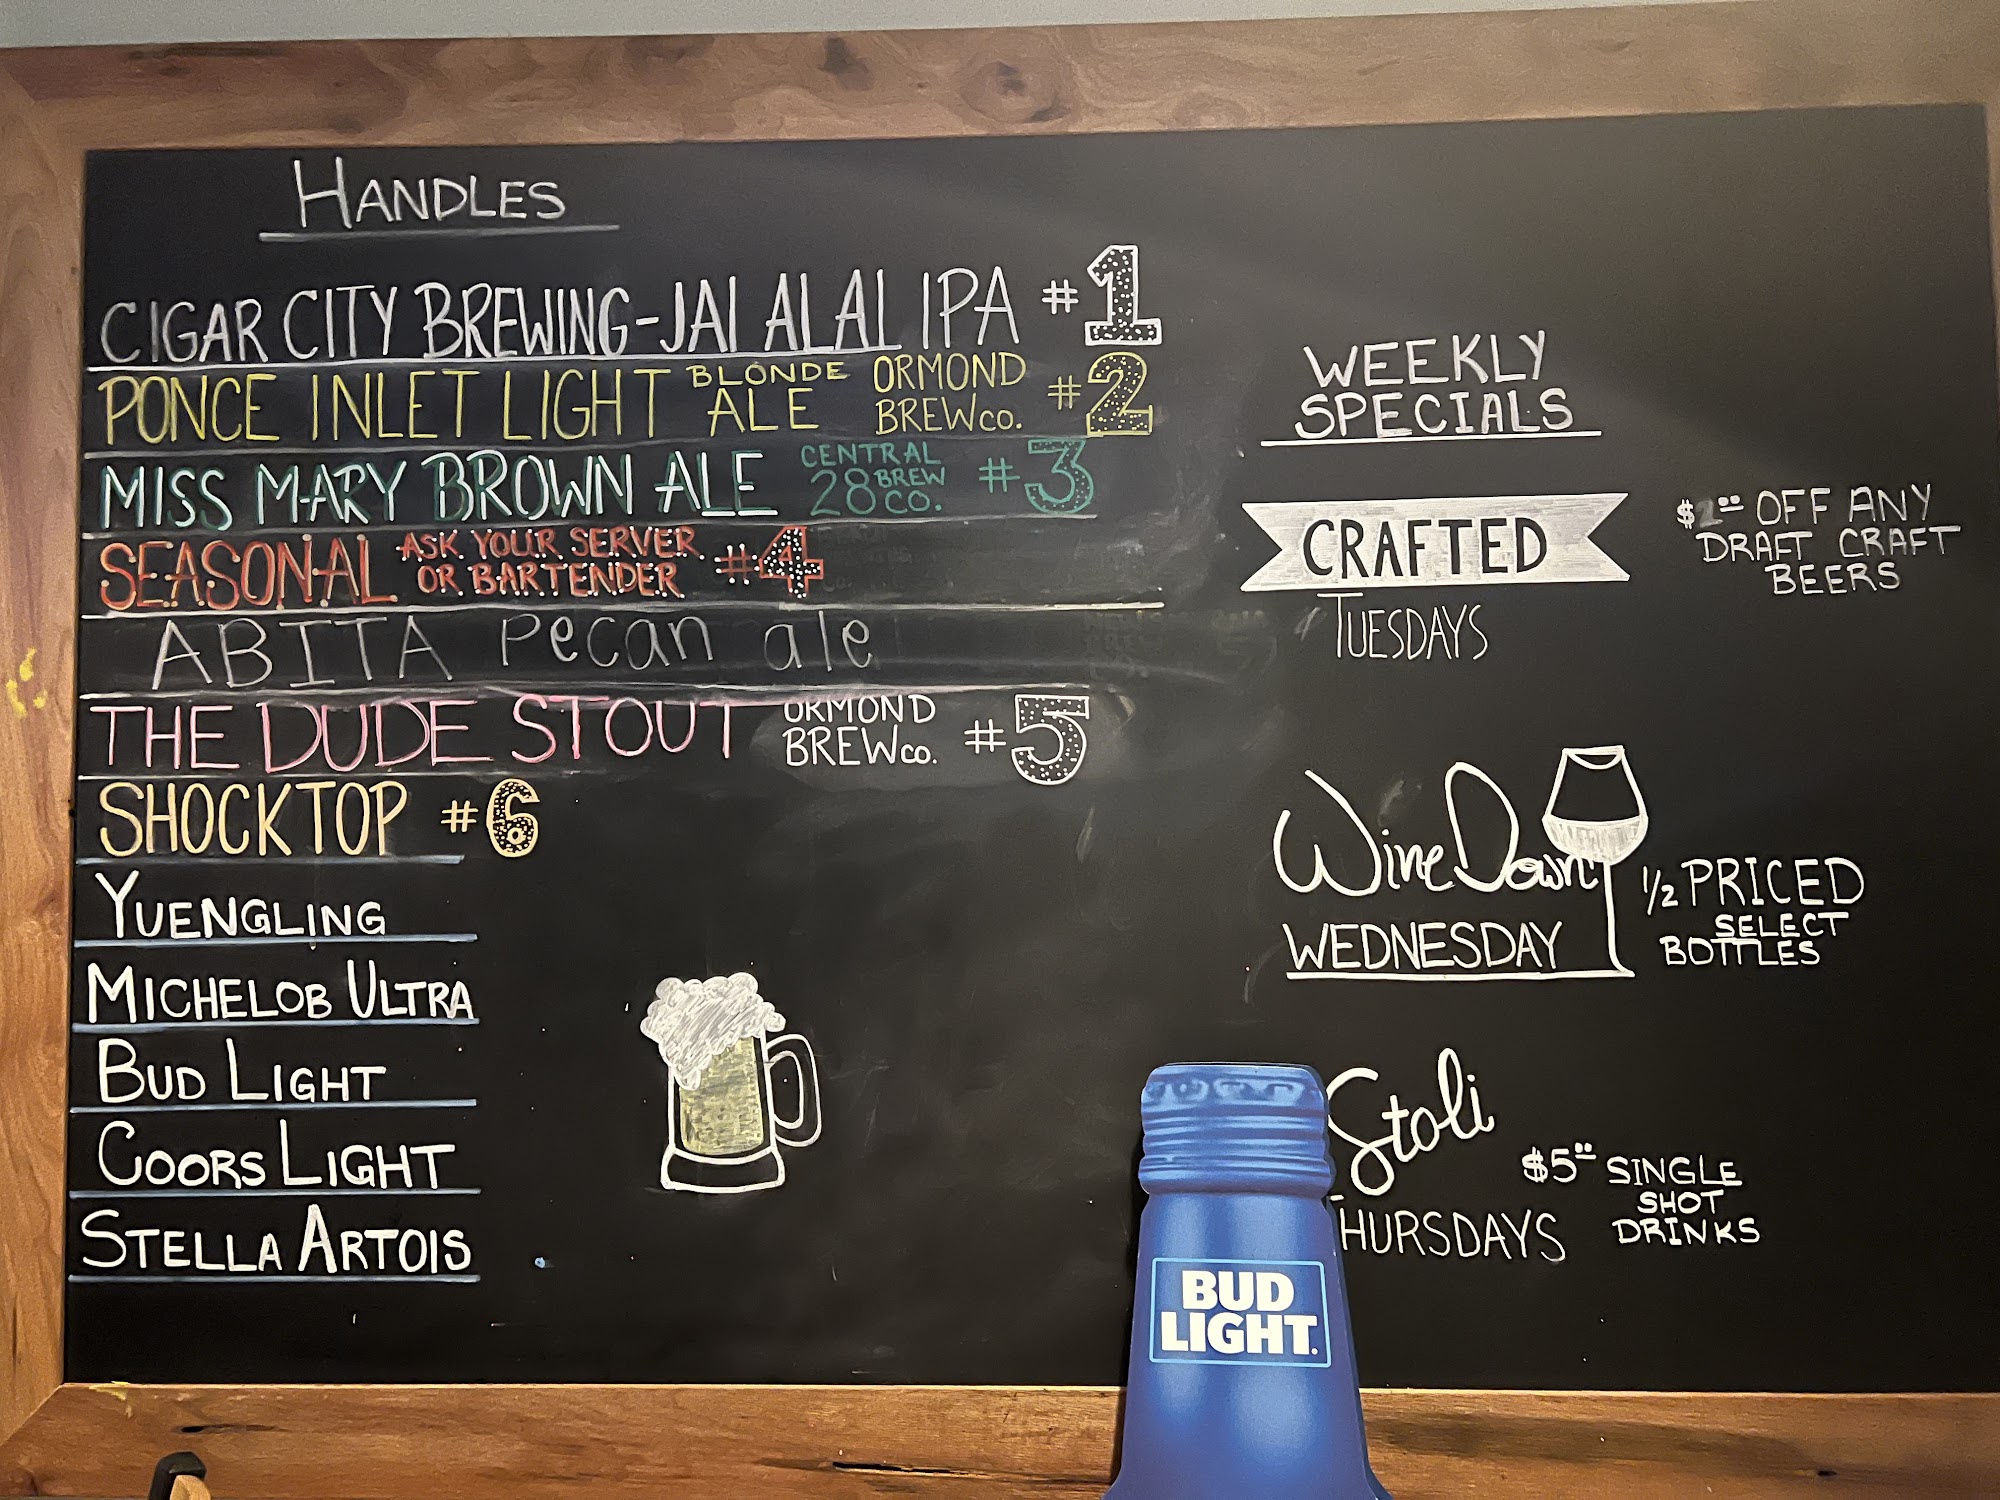 HANDLES
CIGAR CITY BREWING-JAI ALAI IPA #1
PONCE INLET LIGHT BLONDE ALE ORMOND BREW CO. #2
MISS MARY BROWN ALE CENTRAL 28 BREW CO. #3
SEASONAL ASK YOUR SERVER OR BARTENDER #4
ABITA Pecan ale
THE DUDE STOUT ORMOND BREW CO. #5
SHOCKTOP #6
YUENGLING
MICHELOB ULTRA
BUD LIGHT
COORS LIGHT
STELLA ARTOIS
WEEKLY
SPECIALS
CRAFTED
TUESDAYS
$2.00 OFF ANY
DRAFT CRAFT
BEERS
Wine Down
WEDNESDAY
1/2 PRICED
SELECT
BOTTLES
Stoli
THURSDAYS
$5.00 SINGLE
SHOT
DRINKS
BUD
LIGHT.